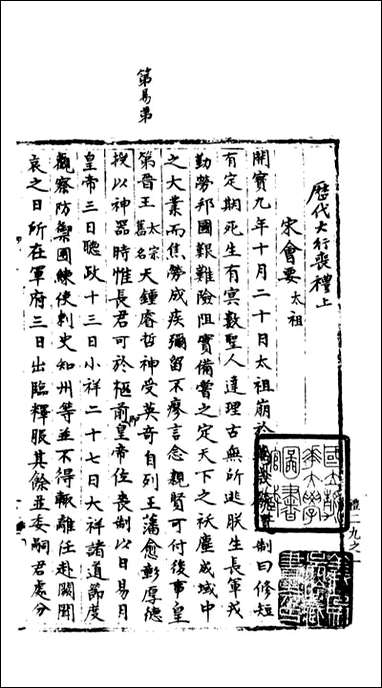 歷代大行喪禮上
宋會要 太祖
開寶九年十月二十日太祖崩於 制曰修短
有定期死生有冥數聖人達理古無所逃朕生長軍戎
勤勞邦國艱難險阻實備嘗之定天下之祅塵成域中
之大業而焦勞成疾彌留不瘳言念親賢可付後事皇
第晉王 太宗舊名 天鍾睿哲神受英奇自列王藩愈彰厚德
授以神器時惟長君可於柩前皇帝位喪制以日易月
皇帝三日聽政十三日小祥二十七日大祥諸道節度
觀察防禦團練使刺史知州等並不得輒離任赴闕聞
哀之日所在軍府三日出臨釋服其餘並委嗣君處分
第易弟
禮二九之一
國立清華大學圖書館藏